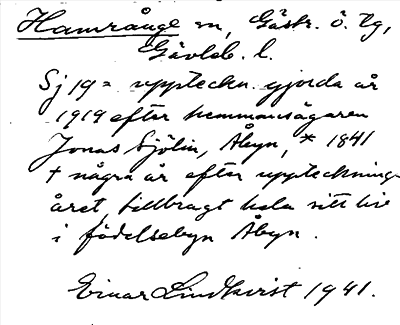 Hamrånge sn, Gästr. ö. tg,
Gävleb. l.
Sj 19 = uppteckn. gjorda år
1919 efter hemmansägaren
Jonas Sjölin, Åbyn, * 1841
† några år efter upptecknings-
året, tillbragt hela sitt liv
i födelsebyn Åbyn.
Einar Lindkvist 1941.